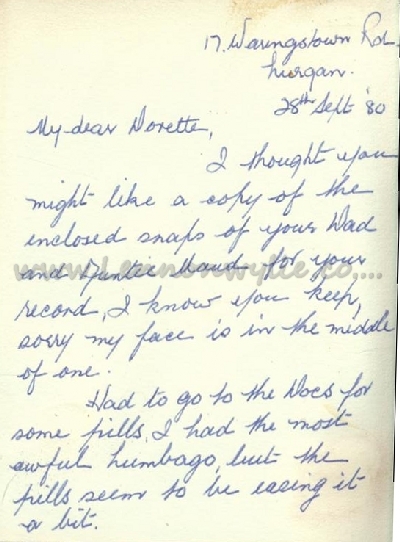 17, Waringstown Rd.
Lurgan.
28th Sept '80
My dear Dorette,
I thought you
might like a copy of the
enclosed snaps of your Dad
and Auntie Maud for your
record, I know you keep,
sorry my face is in the middle
of one.
Had to go to the Docs for
some pills, I had the most
awful lumbago, but the
pills seem to be easing it
a bit.